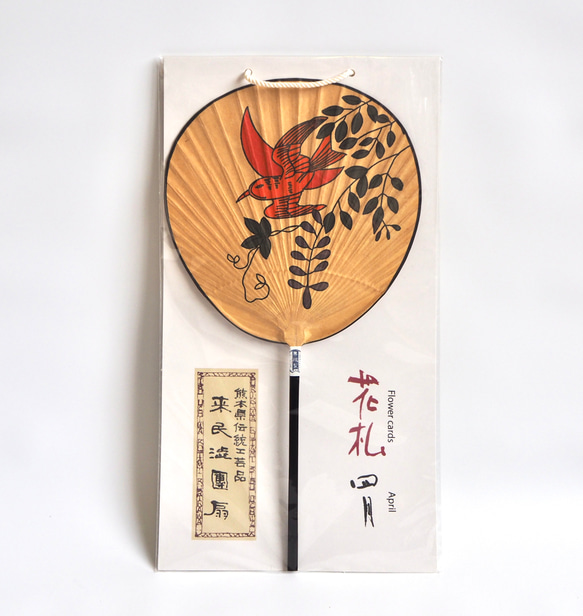 花札
Flower cards
四月
April
熊本県伝統工芸品
来民渋團扇